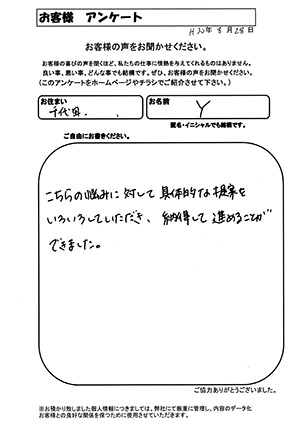 お客様 アンケート
H30年 8月 28日
お客様の声をお聞かせください。
お客様の喜びの声を聞くほど、私たちの仕事に情熱を与えてくれるものはありません。
良い事、悪い事、どんな事でも結構です。ぜひ、お客様の声をお聞かせください。
(このアンケートをホームページやチラシでご紹介させて下さい。)
お住まい
千代田
お名前
Y
匿名・イニシャルでも結構です。
ご自由にお書きください。
こちらの悩みに対して具体的な提案を
いろいろしていただき、納得して進めることが
できました。
ご協力ありがとうございました。
※お預かり致しました個人情報につきましては、弊社にて厳重に管理し、内容のデータ化
お客様との良好な関係を保つために使用させていただきます。